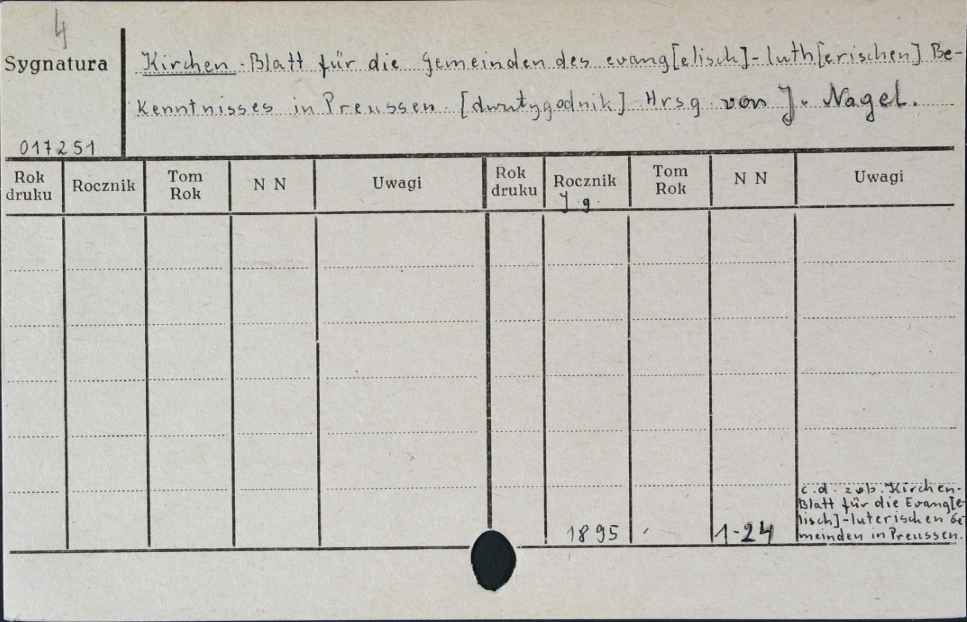 4
Sygnatura
Kirchen-Blatt für die Gemeinden des evang[elisch]-luth[erischen] Be-
kenntnisses in Preussen. [dwutygodnik] Hrsg. von J. Nagel.
017251
Rok druku Rocznik Tom Rok N N Uwagi Rok druku Rocznik Tom Rok N N Uwagi
Jg.
c.d. zob. Kirchen-
Blatt für die Evang[e
lisch]-luterischen Ge
meinden in Preussen.
1895 1-24